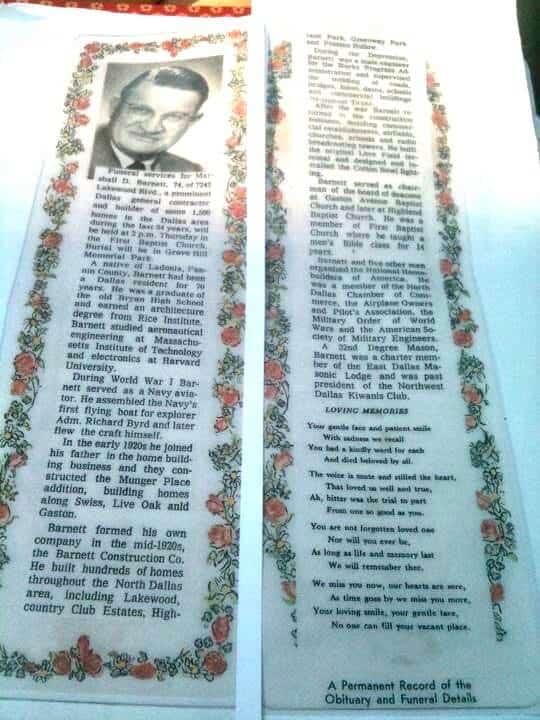 Funeral services for Mar-
shall D. Barnett, 74, of 7247
Lakewood Blvd., a prominent
Dallas general contractor
and builder of some 1,500
homes in the Dallas area
during the last 54 years, will
be held at 2 p.m. Thursday in
the First Baptist Church.
Burial will be in Grove Hill
Memorial Park.
A native of Ladonia, Fan-
nin County, Barnett had been
a Dallas resident for 70
years. He was a graduate of
the old Bryan High School
and earned an architecture
degree from Rice Institute.
Barnett studied aeronautical
engineering at Massachu-
setts Institute of Technology
and electronics at Harvard
University.
During World War I Bar-
nett served as a Navy avia-
tor. He assembled the Navy's
first flying boat for explorer
Adm. Richard Byrd and later
flew the craft himself.
In the early 1920s he joined
his father in the home build-
ing business and they con-
structed the Munger Place
addition, building homes
along Swiss, Live Oak and
Gaston.
Barnett formed his own
company in the mid-1920s,
the Barnett Construction Co.
He built hundreds of homes
throughout the North Dallas
area, including Lakewood,
country Club Estates, High-
land Park, Greenway Park
and Preston Hollow.
During the Depression,
Barnett was a main engineer
for the Works Progress Ad-
ministration and supervised
the building of roads,
bridges, dams, schools
and commercial buildings
Texas.
After the war Barnett re-
turned to the construction
business, building commer-
cial establishments, airfields,
churches, schools and radio
broadcasting towers. He built
the original Love Field ter-
minal and designed and in-
stalled the Cotton Bowl light-
ing.
Barnett served as chair-
man of the board of deacons
at Gaston Avenue Baptist
Church and later at Highland
Baptist Church. He was a
member of First Baptist
Church where he taught a
men's Bible class for 14
years.
Barnett and five other men
organized the National Home-
builders of America. He
was a member of the North
Dallas Chamber of Com-
merce, the Airplane Owners
and Pilot's Association, the
Military Order of World
Wars and the American So-
ciety of Military Engineers.
A 32nd Degree Mason,
Barnett was a charter mem-
ber of the East Dallas Ma-
sonic Lodge and was past
president of the Northwest
Dallas Kiwanis Club.
LOVING MEMORIES
Your gentle face and patient smile
With sadness we recall
You had a kindly word for each
And died beloved by all.
The voice is mute and stilled the heart,
That loved us well and true,
Ah, bitter was the trial to part
From one so good as you.
You are not forgotten loved one
Nor will you ever be,
As long as life and memory last
We will remember thee.
We miss you now, our hearts are sore,
As time goes by we miss you more,
Your loving smile, your gentle face,
No one can fill your vacant place.
A Permanent Record of the
Obituary and Funeral Details